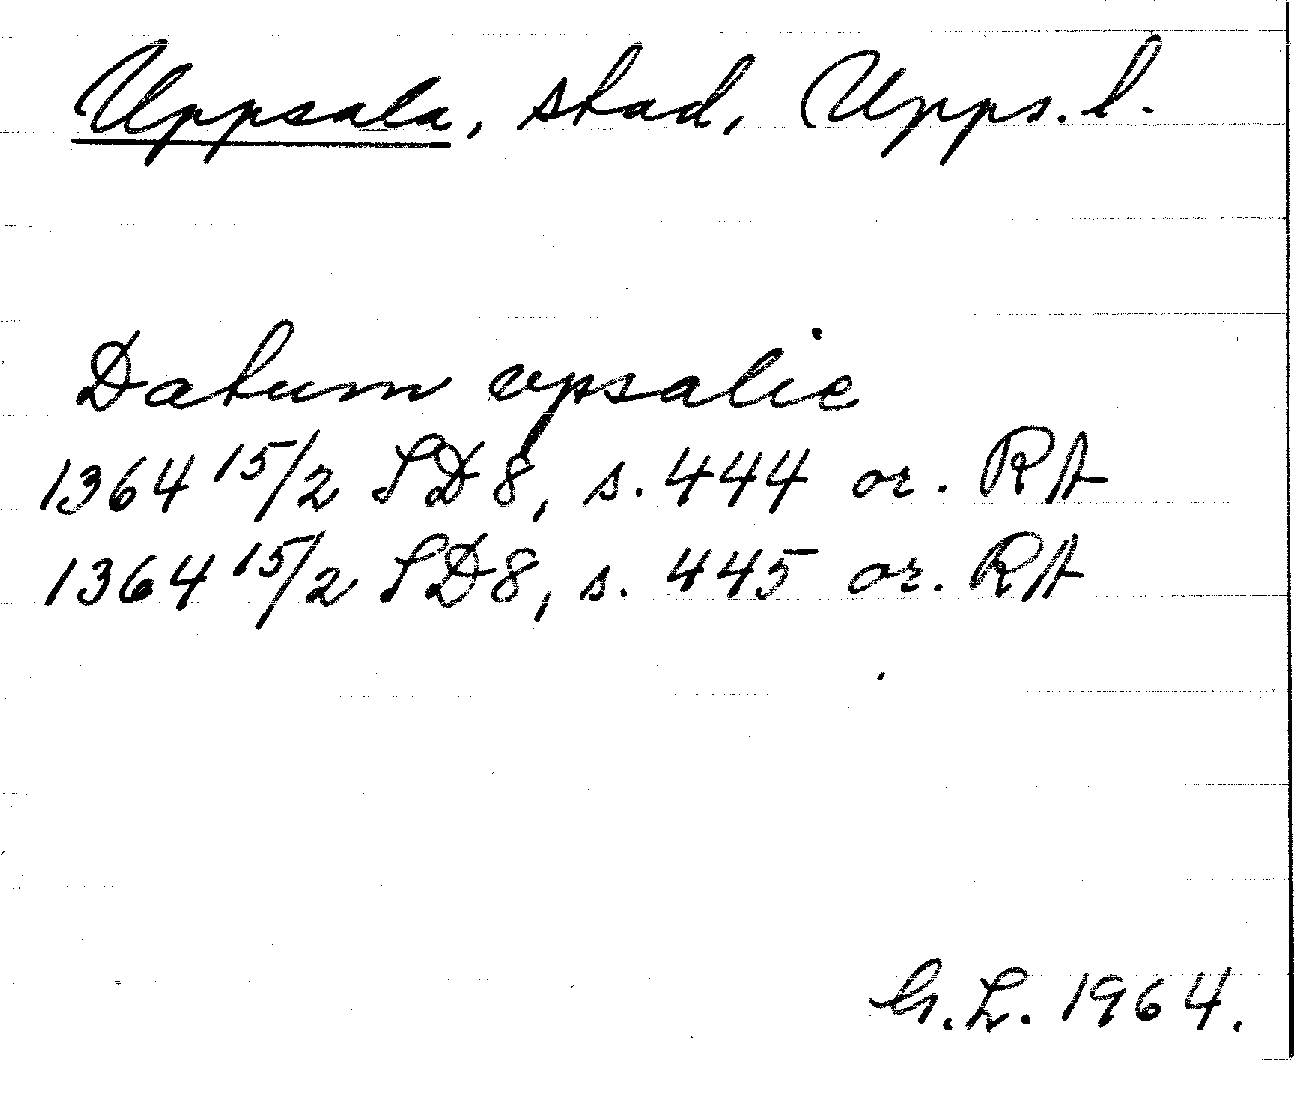 Uppsala, stad, Upps. l.
Datum vpsalie
1364 15/2 SD 8, s. 444 or. RA
1364 15/2 SD 8, s. 445 or. RA
G. L. 1964.